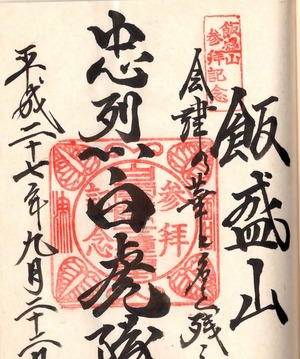 飯盛山
参拝記念
飯盛山
会津の華と
残
忠烈
白虎隊
参拝
記念
平成二十七年九月二十二